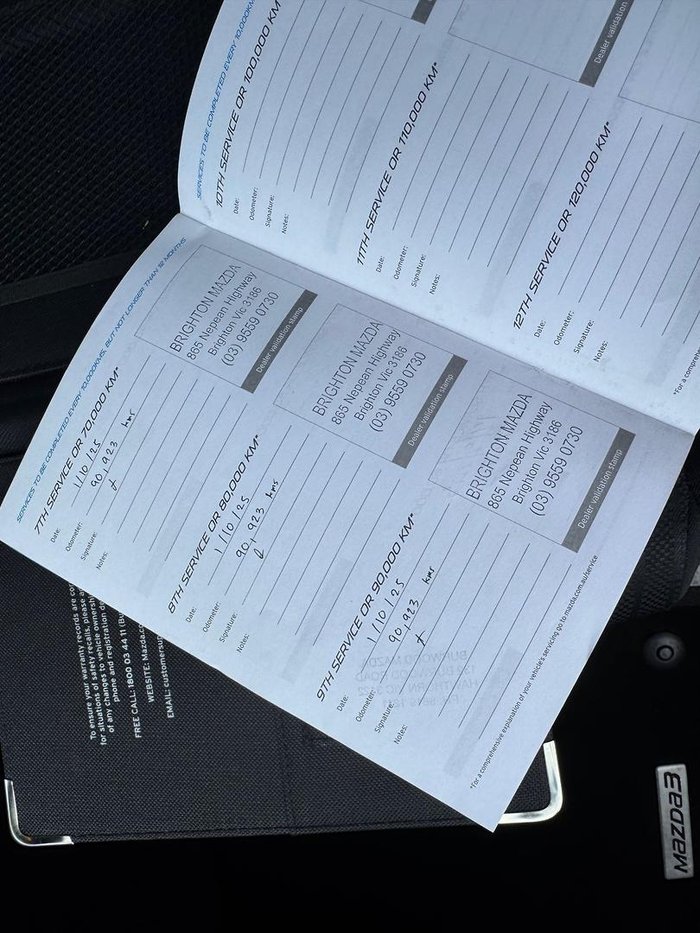 SERVICES TO BE COMPLETED EVERY 10,000KM
10TH SERVICE OR 100,000 KM*
Date:
Odometer:
Signature:
Notes:
11TH SERVICE OR 110,000 KM*
Date:
Odometer:
Signature:
Notes:
Dealer validation
12TH SERVICE OR 120,000 KM*
Date:
Odometer:
Signature:
Notes:
*For a comprehe
SERVICES TO BE COMPLETED EVERY 10,000KMS, BUT NOT LONGER THAN 12 MONTHS
7TH SERVICE OR 70,000 KM*
Date: 1/10/25
Odometer: 90,923 kms
Signature:
Notes:
BRIGHTON MAZDA
865 Nepean Highway
Brighton Vic 3186
(03) 9559 0730
Dealer validation stamp
8TH SERVICE OR 80,000 KM*
Date: 1/10/25
Odometer: 90,923 kms
Signature:
Notes:
BRIGHTON MAZDA
865 Nepean Highway
Brighton Vic 3186
(03) 9559 0730
Dealer validation stamp
9TH SERVICE OR 90,000 KM*
Date: 1/10/25
Odometer: 90,923 kms
Signature:
Notes:
BRIGHTON MAZDA
865 Nepean Highway
Brighton Vic 3186
(03) 9559 0730
Dealer validation stamp
*For a comprehensive explanation of your vehicle's servicing go to mazda.com.au/service
To ensure your warranty records are co
for situations of safety recalls, please a
of any changes to vehicle ownersh
phone and registration d
FREE CALL: 1800 03 44 11 (Bu
WEBSITE: Mazda.c
EMAIL: customersup
mazda3